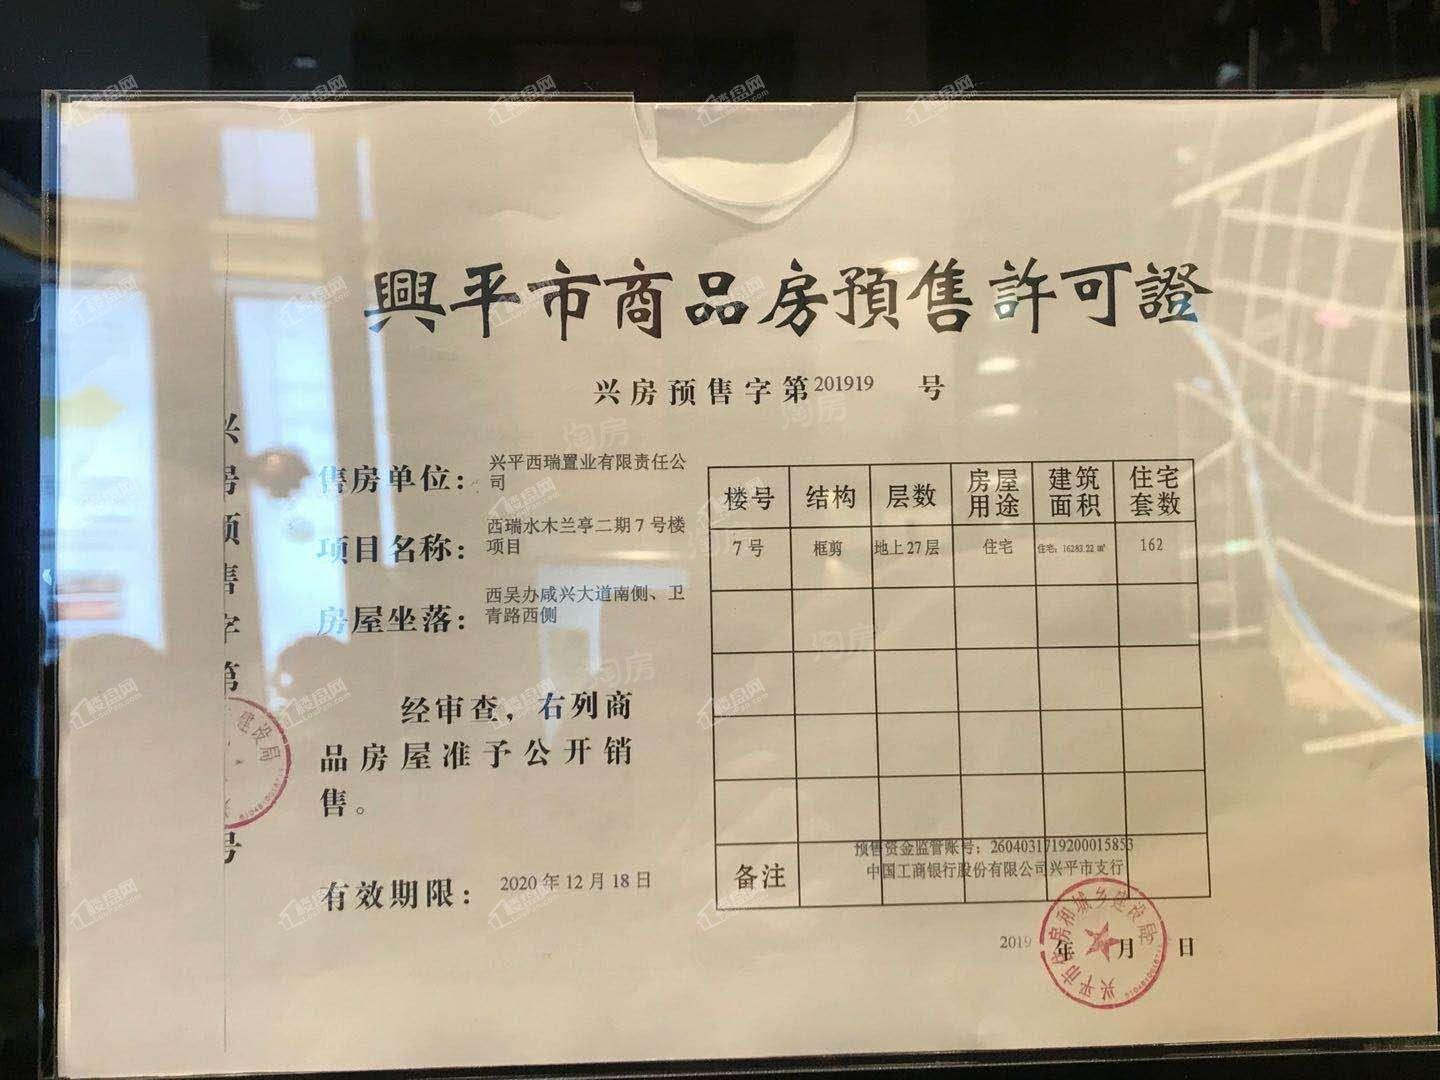 興平市商品房預售許可證
兴房预售字第201919 号
售房单位：兴平西瑞置业有限责任公
司
项目名称：西瑞水木兰亭二期7号楼
项目
房屋坐落：西吴办咸兴大道南侧、卫
青路西侧
经审查，右列商
品房屋准予公开销
售。
有效期限：2020年12月18日
楼号 结构 层数 房屋用途 建筑面积 住宅套数
7号 框剪 地上27层 住宅 住宅：16283.22㎡ 162
备注
预售资金监管账号：2604031719200015853
中国工商银行股份有限公司兴平市支行
2019 年 月 日
兴平市住房和城乡建设局
兴房预售字第 号
建设局
楼盘网
淘房